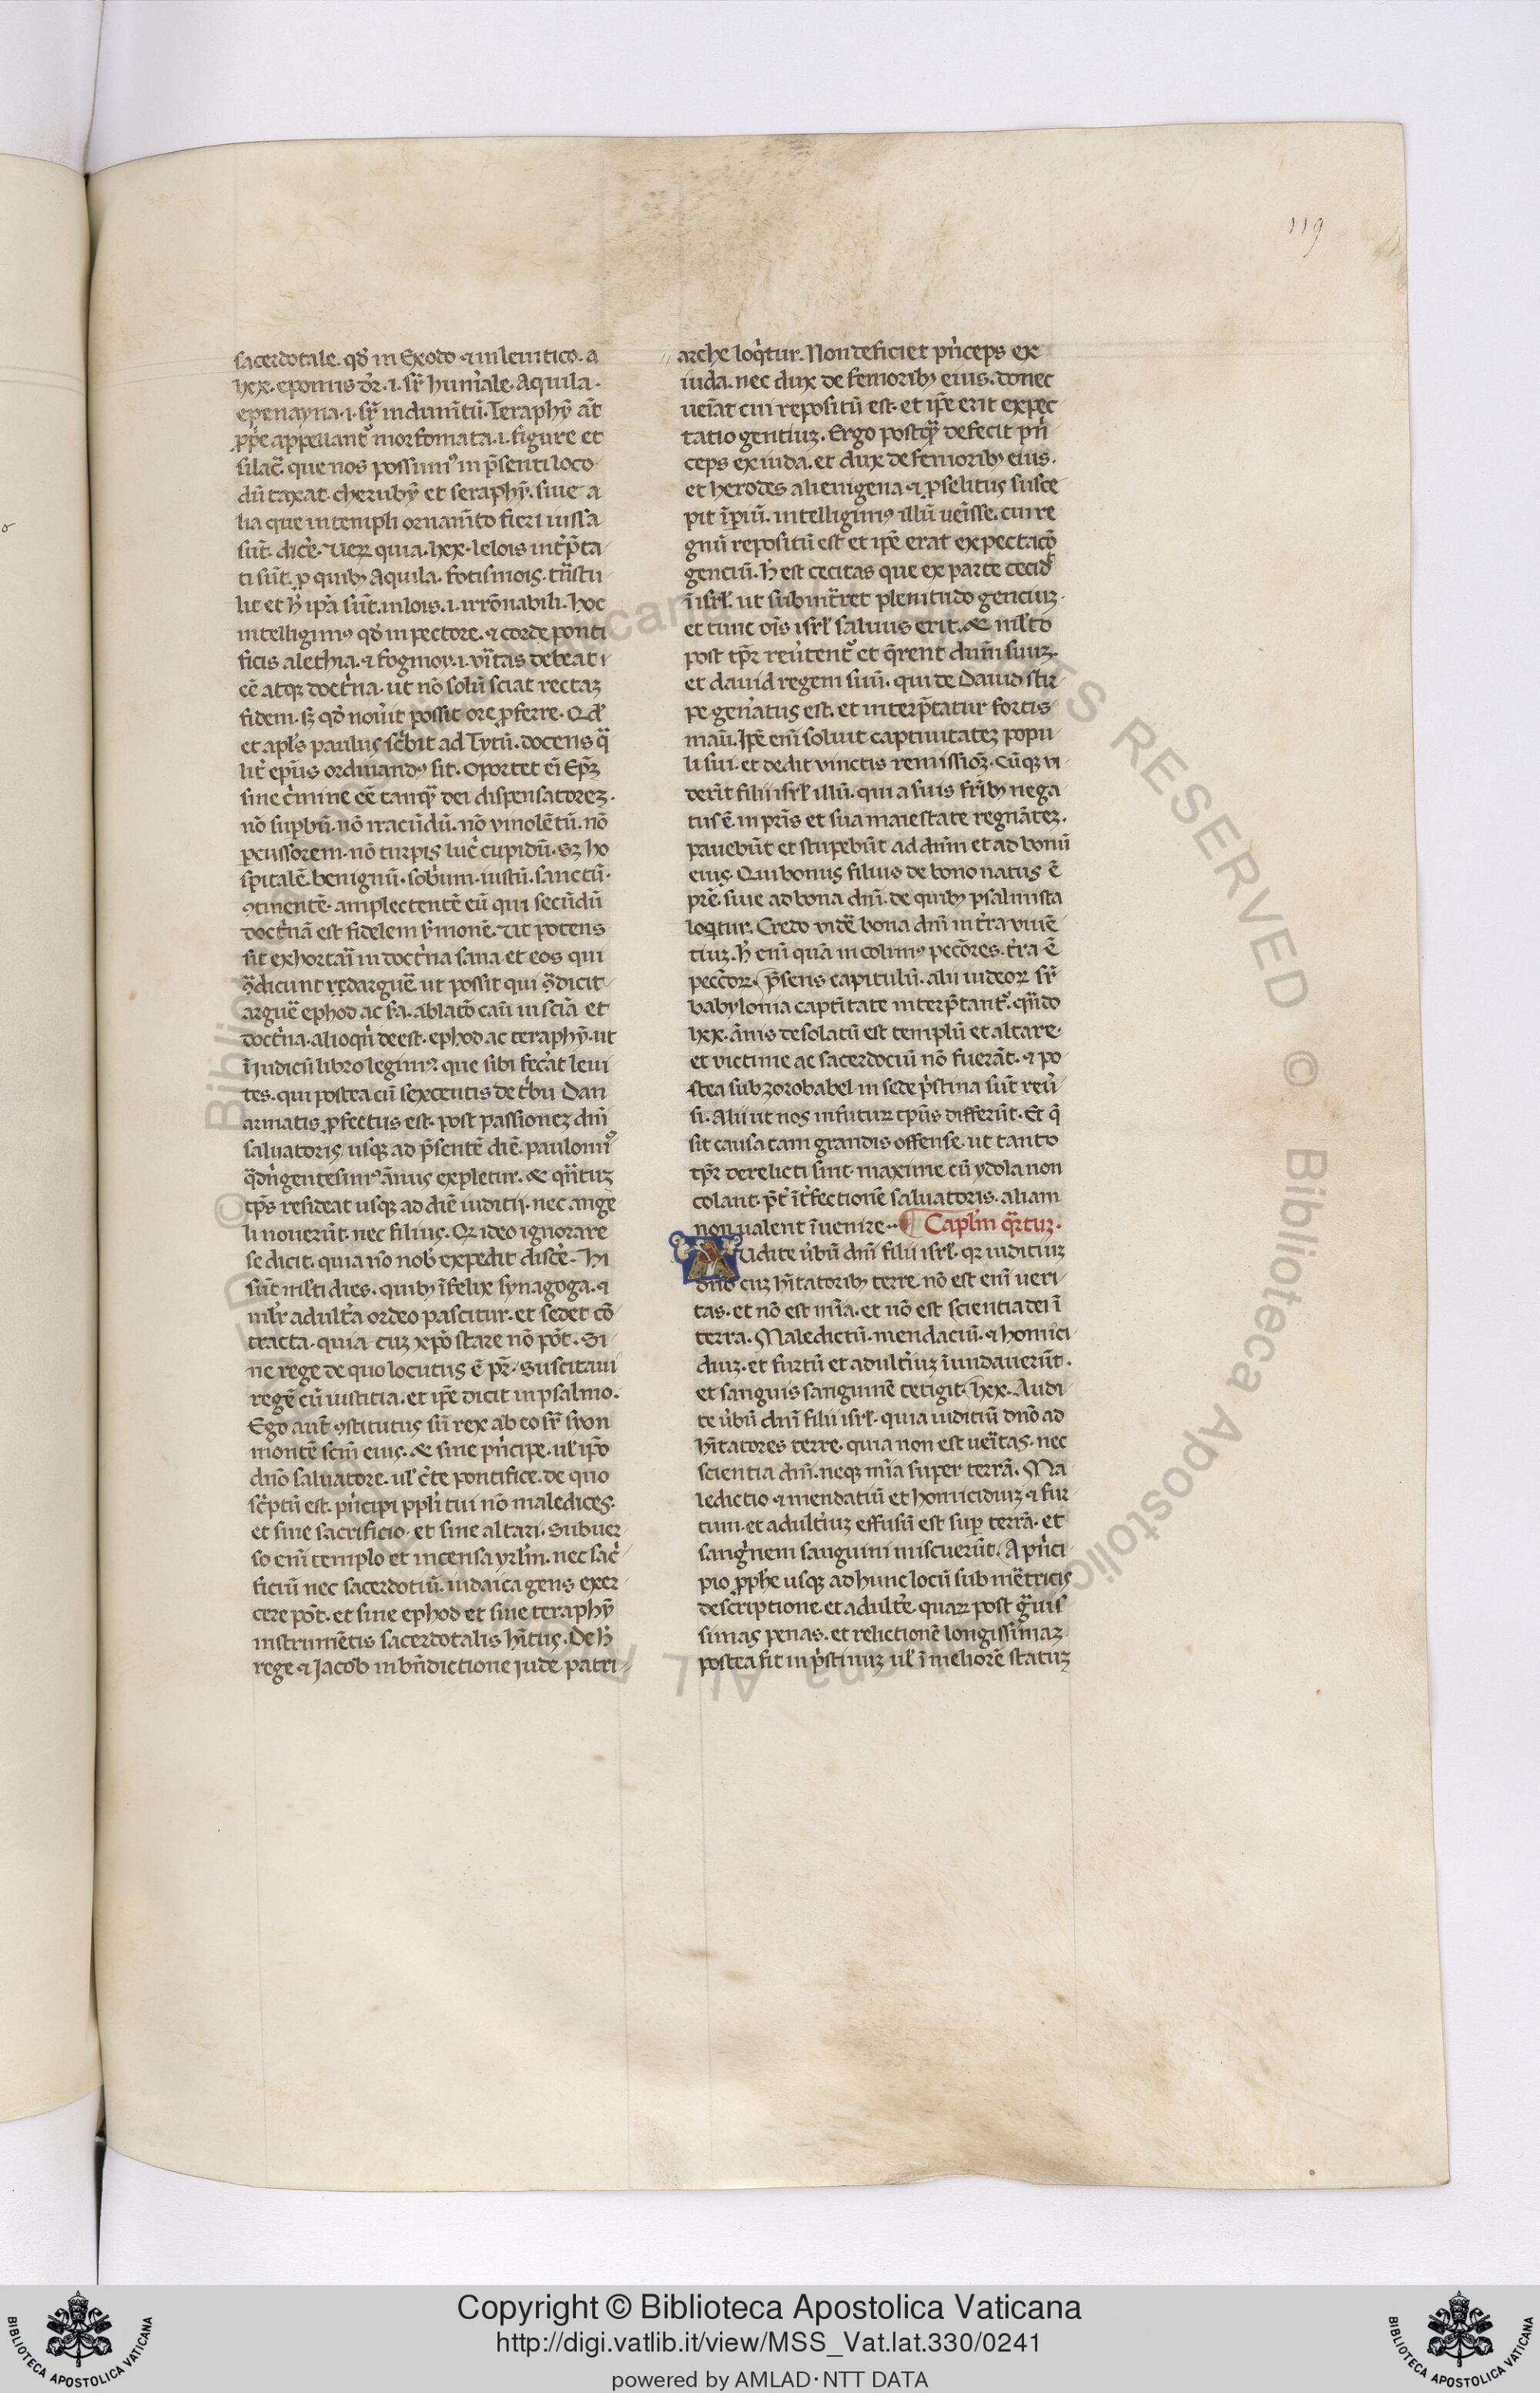 119
sacerdotale. qđ in Exodo ⁊ in leuitico. a
lxx. epomis dr̄. i. sr̄ hum̄ale. Aquila.
epenayna. i. sr̄ indum̄tū. Teraphȳ āt
ꝓp̄e appellant᷑ morfomata. i. figure et
silac̄. que nos possum᷒ in p̄senti loco
dū taxat. cherubȳ et seraphȳ. siue a
lia que in templi ornam̄to fieri iussa
sūt. dic̄e. Ueꝝ quia. lxx. lelois int̄p̄ta
ti sūt. ꝓ quibꝫ Aquila. fotismois. trāstu
lit et
intelligim᷒ qđ in pectore. ⁊ corde ponti
ficis alethia. ⁊ fogmoy. i. ūitas debeat
eē atqꝫ doct̄na. ut nō solū sciat rectaꝫ
fidem. sꝫ qđ nou̇it possit ore ꝓferre. Qđ
et apls̄ paulus sc̄bit ad Tytū. docens q̄
lit̄ ep̄us ordinand᷒ sit. Oportet ei᷒ Ep̄ꝫ
sine c̄mine eē tanqꝫ dei dispensatoreꝫ.
nō suꝑbū. nō iracūdū. nō vinolētū. nō
ꝑcussorem. nō turpis luc̄ cupidū. sꝫ ho
spitalē. benignū. sob̄um. iustū. sanctū.
ꝯtinentē. amplectentē eū qui secūdū
doct̄nā est fidelem s̄monē. Ut potens
sit exhortari in doct̄na sana et eos qui
ꝯ̄dicunt redargue᷑. ut possit qui ꝯ̄dicit
argue᷑
doct̄na. alioqn̄ deest. ephod ac teraphȳ. ut
ī Iudicū libro legim᷒. que sibi fec̄at leui
tes. qui postea cū sexcentis de t̄bu Dan
armatis ꝓfectus est. post passioneꝫ dn̄i
saluatoris usqꝫ ad p̄sentē diē. paulomi᷒
q̄dn̄gentesim᷒ ānus expletur. &amp; qn̄tuꝫ
tp̄s resideat usqꝫ ad diē iuditii. nec ange
li nouerūt. nec filius. Qꝝ ideo ignorare
se dicit. quia nō nob̄ expedit disc̄e. Hi
sūt ml̄ti dies. quibꝫ īfelix synagoga. ⁊
ml̄r adult̄a ordeo pascitur. et sedet cō
tracta. quia cuꝫ xp̄o stare nō pōt. Si
ne rege de quo locutus ē pr̄. Suscitaui
regē cū iustitia. et ip̄e dicit in psalmo.
Ego aūt ꝯstitutus sū rex ab eo sr̄ syon
montē sc̄m eius. &amp; sine pn̄cipe. ul̄ ip̄o
dn̄o saluatore. ul̄ c̄te pontifice. de quo
sc̄ptū est. pn̄cipi ppl̄i tui nō maledices.
et sine sacrificio. et sine altari. Subuer
so eni᷒ templo et incensa yrl̄m. nec sac̄
ficiū nec sacerdotiū. iudaica gens exer
cere pōt. et sine ephod et sine teraphȳ
instrumētis sacerdotalis hīt᷒. De h̄
rege ⁊ Jacob in bn̄dictione jude patri
arche loq̄tur. Non deficiet pn̄ceps ex
iuda. nec dux de femoribꝫ eius. donec
uēiat cui repositū est. et ip̄e erit expec
tatio gentiuꝫ. Ergo postqꝫ defecit pn̄
ceps ex iuda. et dux de femoribꝫ eius.
et herodes alienigena. ⁊ ꝓselitus susce
pit īꝑiū. intelligim᷒ illū uēisse. cui re
gnū repositū est et ip̄e erat expectacō
genciū. h̄ est cecitas que ex parte cecid᷑
ī isrl̄. ut subint̄ret plenitudo genciuꝫ.
et tunc oīs isrl̄ saluus erit. &amp; ml̄to
post tp̄r reu̇tent᷑ et q̄rent dn̄m suuꝫ.
et dauid regem suū. qui de Dauid stir
pe gen̄atus est. et interp̄tatur fortis
manū. Ip̄e eni᷒ soluit captiuitateꝫ popu
li sui. et dedit uinctis remissioꝫ. Cūqꝫ vi
derīt filii isrl̄ illū. qui a suis fr̄ibꝫ nega
tus ē. in pr̄is et sua maiestate regnāteꝫ.
pauebūt et stupebūt ad dn̄m et ad bonū
eius. Qui bonus filius de bono natus ē
pr̄e. siue ad bona dn̄i. de quibꝫ psalmista
loq̄tur. Credo vide᷑ bona dn̄i in t̄ra viuē
tiuꝫ. h̄ eni᷒ quā incolim᷒ pecc̄ores. t̄ra ē
pecc̄oꝝ. p̄sens capitulū. alii iudeoꝝ sr̄
babylonia captīitate interp̄tant᷑. qn̄do
lxx. ānis desolatū est templū et altare.
et victime ac sacerdociū nō fuerāt. ⁊ po
stea sub zorobabel in sede p̄stina sūt reu̇
si. Alii ut nos in futuꝝ tp̄us differūt. Et q̄
sit causa tam grandis offense. ut tanto
tp̄r derelicti sint. maxime cū ydola non
colant. p̄t īt̄fectionē saluatoris. aliam
non ualent īuenire. ¶ Capl̄m qr̄tuꝫ.
AUdite u̇bū dn̄i filii isrl̄. qꝝ iuditiuꝫ
dn̄o cuꝫ hītatoribꝫ terre. nō est eni᷒ ueri
tas. et nō est mīa. et nō est scientia dei ī
terra. Maledictū. mendaciū. ⁊ homici
diuꝫ. et furtū et adult̄iuꝫ īundauerūt.
et sanguis sanguinē tetigit. lxx. Audi
te u̇bū dn̄i filii isrl̄. quia iuditiū dn̄o ad
hītatores terre. quia non est uēitas. nec
scientia dn̄i. neqꝫ mīa super terrā. Ma
ledictio ⁊ mendatiū et homicidiuꝫ ⁊ fur
tum. et adult̄iuꝫ effusū est suꝑ terrā. et
sanḡnem sanguini miscuerūt. A pn̄ci
pio ꝓphe usqꝫ ad hunc locū sub meetricis
descriptione. et adult̄e. quaꝝ post ḡuis
simas penas. et relictionē longissimaꝫ
postea fit in p̄stinuꝫ ul̄ ī meliorē statuꝫ
Copyright © Biblioteca Apostolica Vaticana
http://digi.vatlib.it/view/MSS_Vat.lat.330/0241
powered by AMLAD·NTT DATA